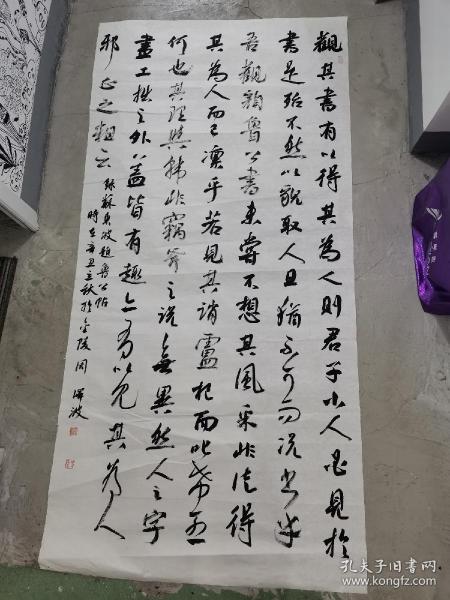 觀其書有以得其為人則君子小人必見於
書是殆不然以貌取人且猶不可而況書乎
吾觀顏魯公書未嘗不想其風采非徒得
其為人而已凜乎若見其誚盧杞而叱希烈
何也其理與韓非竊斧之說無異然人之字
畫工拙之外蓋皆有趣亦有以見其為人
邪正之粗云
錄蘇東波題魯公帖
時在辛丑立秋於金陵周波
孔夫子旧书网
www.kongfz.com